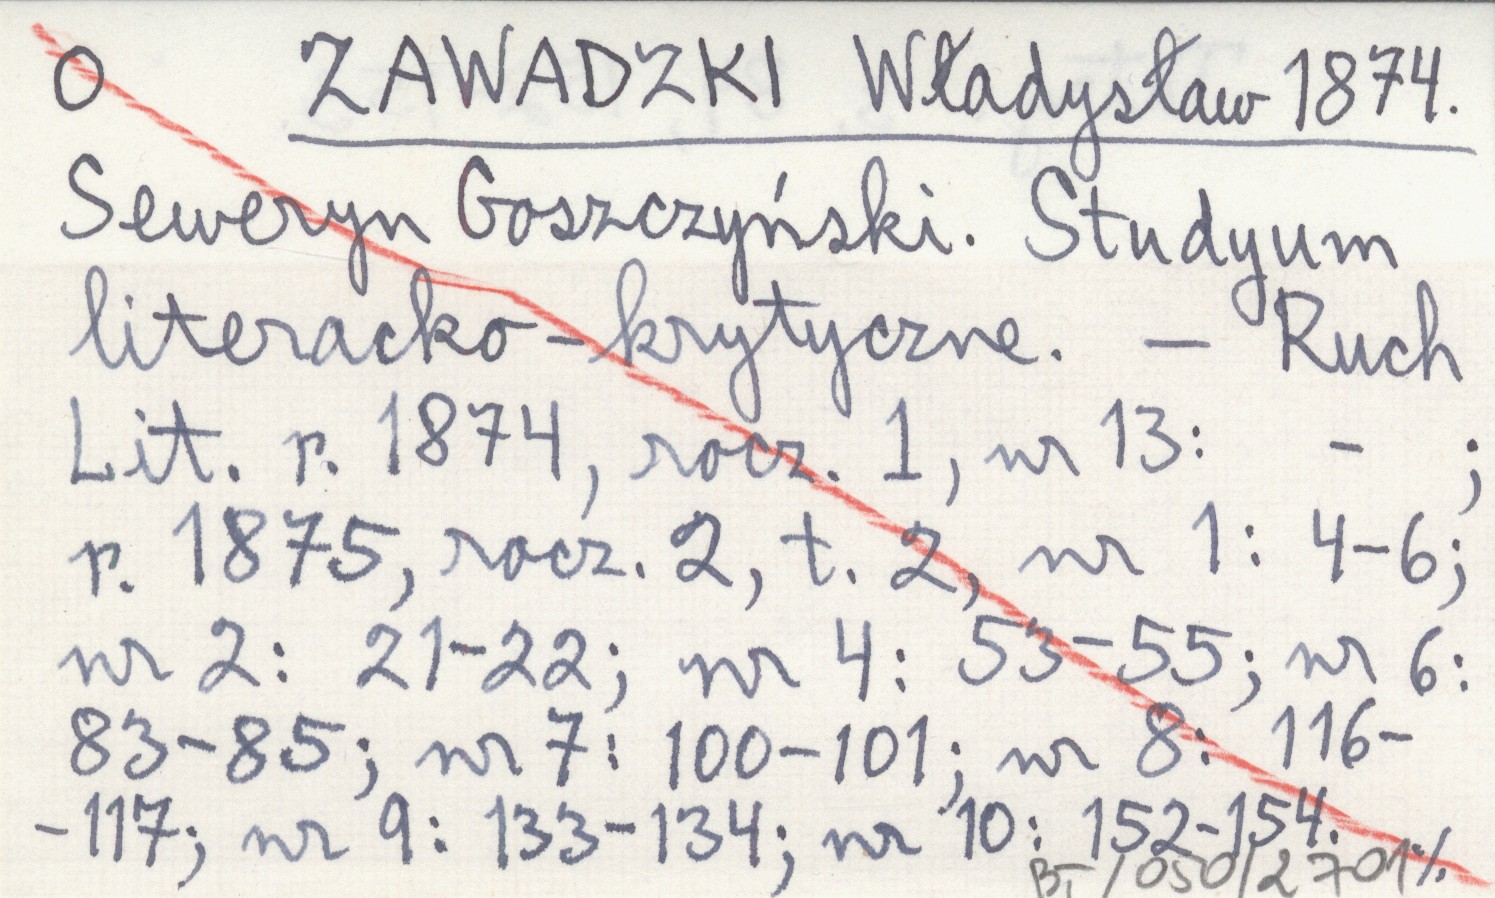 O ZAWADZKI Władysław 1874.
Seweryn Goszczyński. Studyum
literacko-krytyczne. — Ruch
Lit. r. 1874, rocz. 1, nr 13: - ;
r. 1875, rocz. 2, t. 2, nr 1: 4-6;
nr 2: 21-22; nr 4: 53-55; nr 6:
83-85; nr 7: 100-101; nr 8: 116-
-117; nr 9: 133-134; nr 10: 152-154.
BT/050/2701 ./.